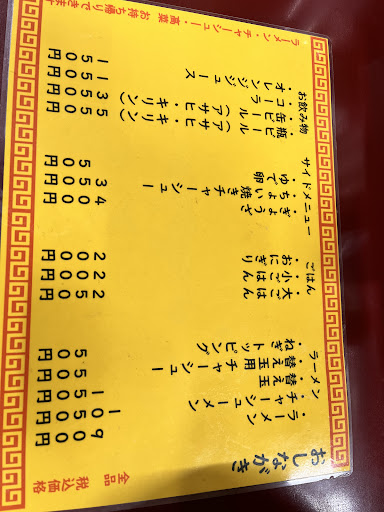 おしながき
全品 税込価格
ラーメン
・ラーメン 900円
・チャーシューメン 1050円
・替え玉 150円
・替え玉用チャーシュー 50円
・ねぎトッピング 50円
ごはん
・大ごはん 250円
・小ごはん 200円
・おにぎり 200円
サイドメニュー
・ぎょうざ 400円
・ちょい焼きチャーシュー 350円
・ゆで卵 50円
お飲み物
・瓶ビール(アサヒ・キリン) 550円
・缶ビール(アサヒ・キリン) 350円
・コーラ 150円
・オレンジジュース 150円
ラーメン・チャーシュー・高菜 お持ち帰りできます